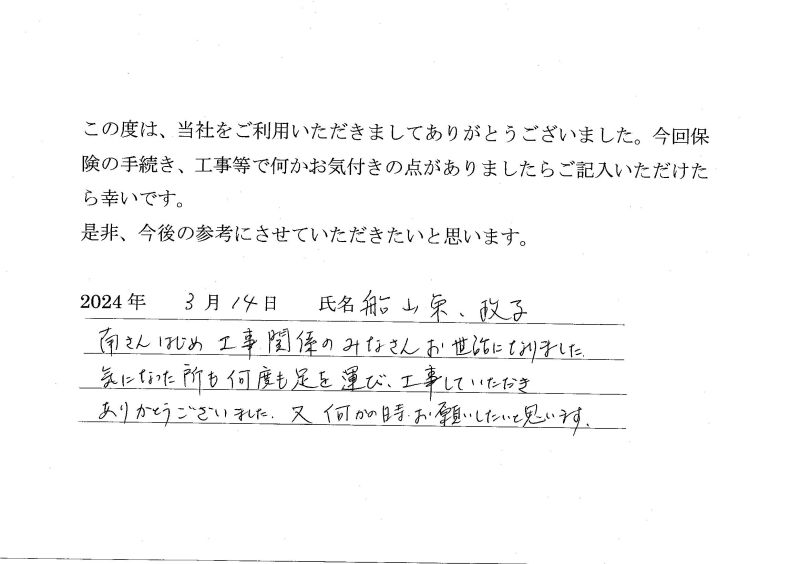 この度は、当社をご利用いただきましてありがとうございました。今回保
険の手続き、工事等で何かお気付きの点がありましたらご記入いただけた
ら幸いです。
是非、今後の参考にさせていただきたいと思います。
2024年 3月14日 氏名 船山栄、政子
南さんはじめ工事関係のみなさんお世話になりました。
気になった所も何度も足を運び、工事していただき
ありがとうございました。又何かの時お願いしたいと思います。